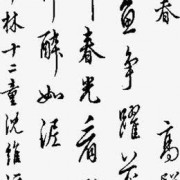 春 高
魚争躍
春光看
醉如泥
林十二童沈維